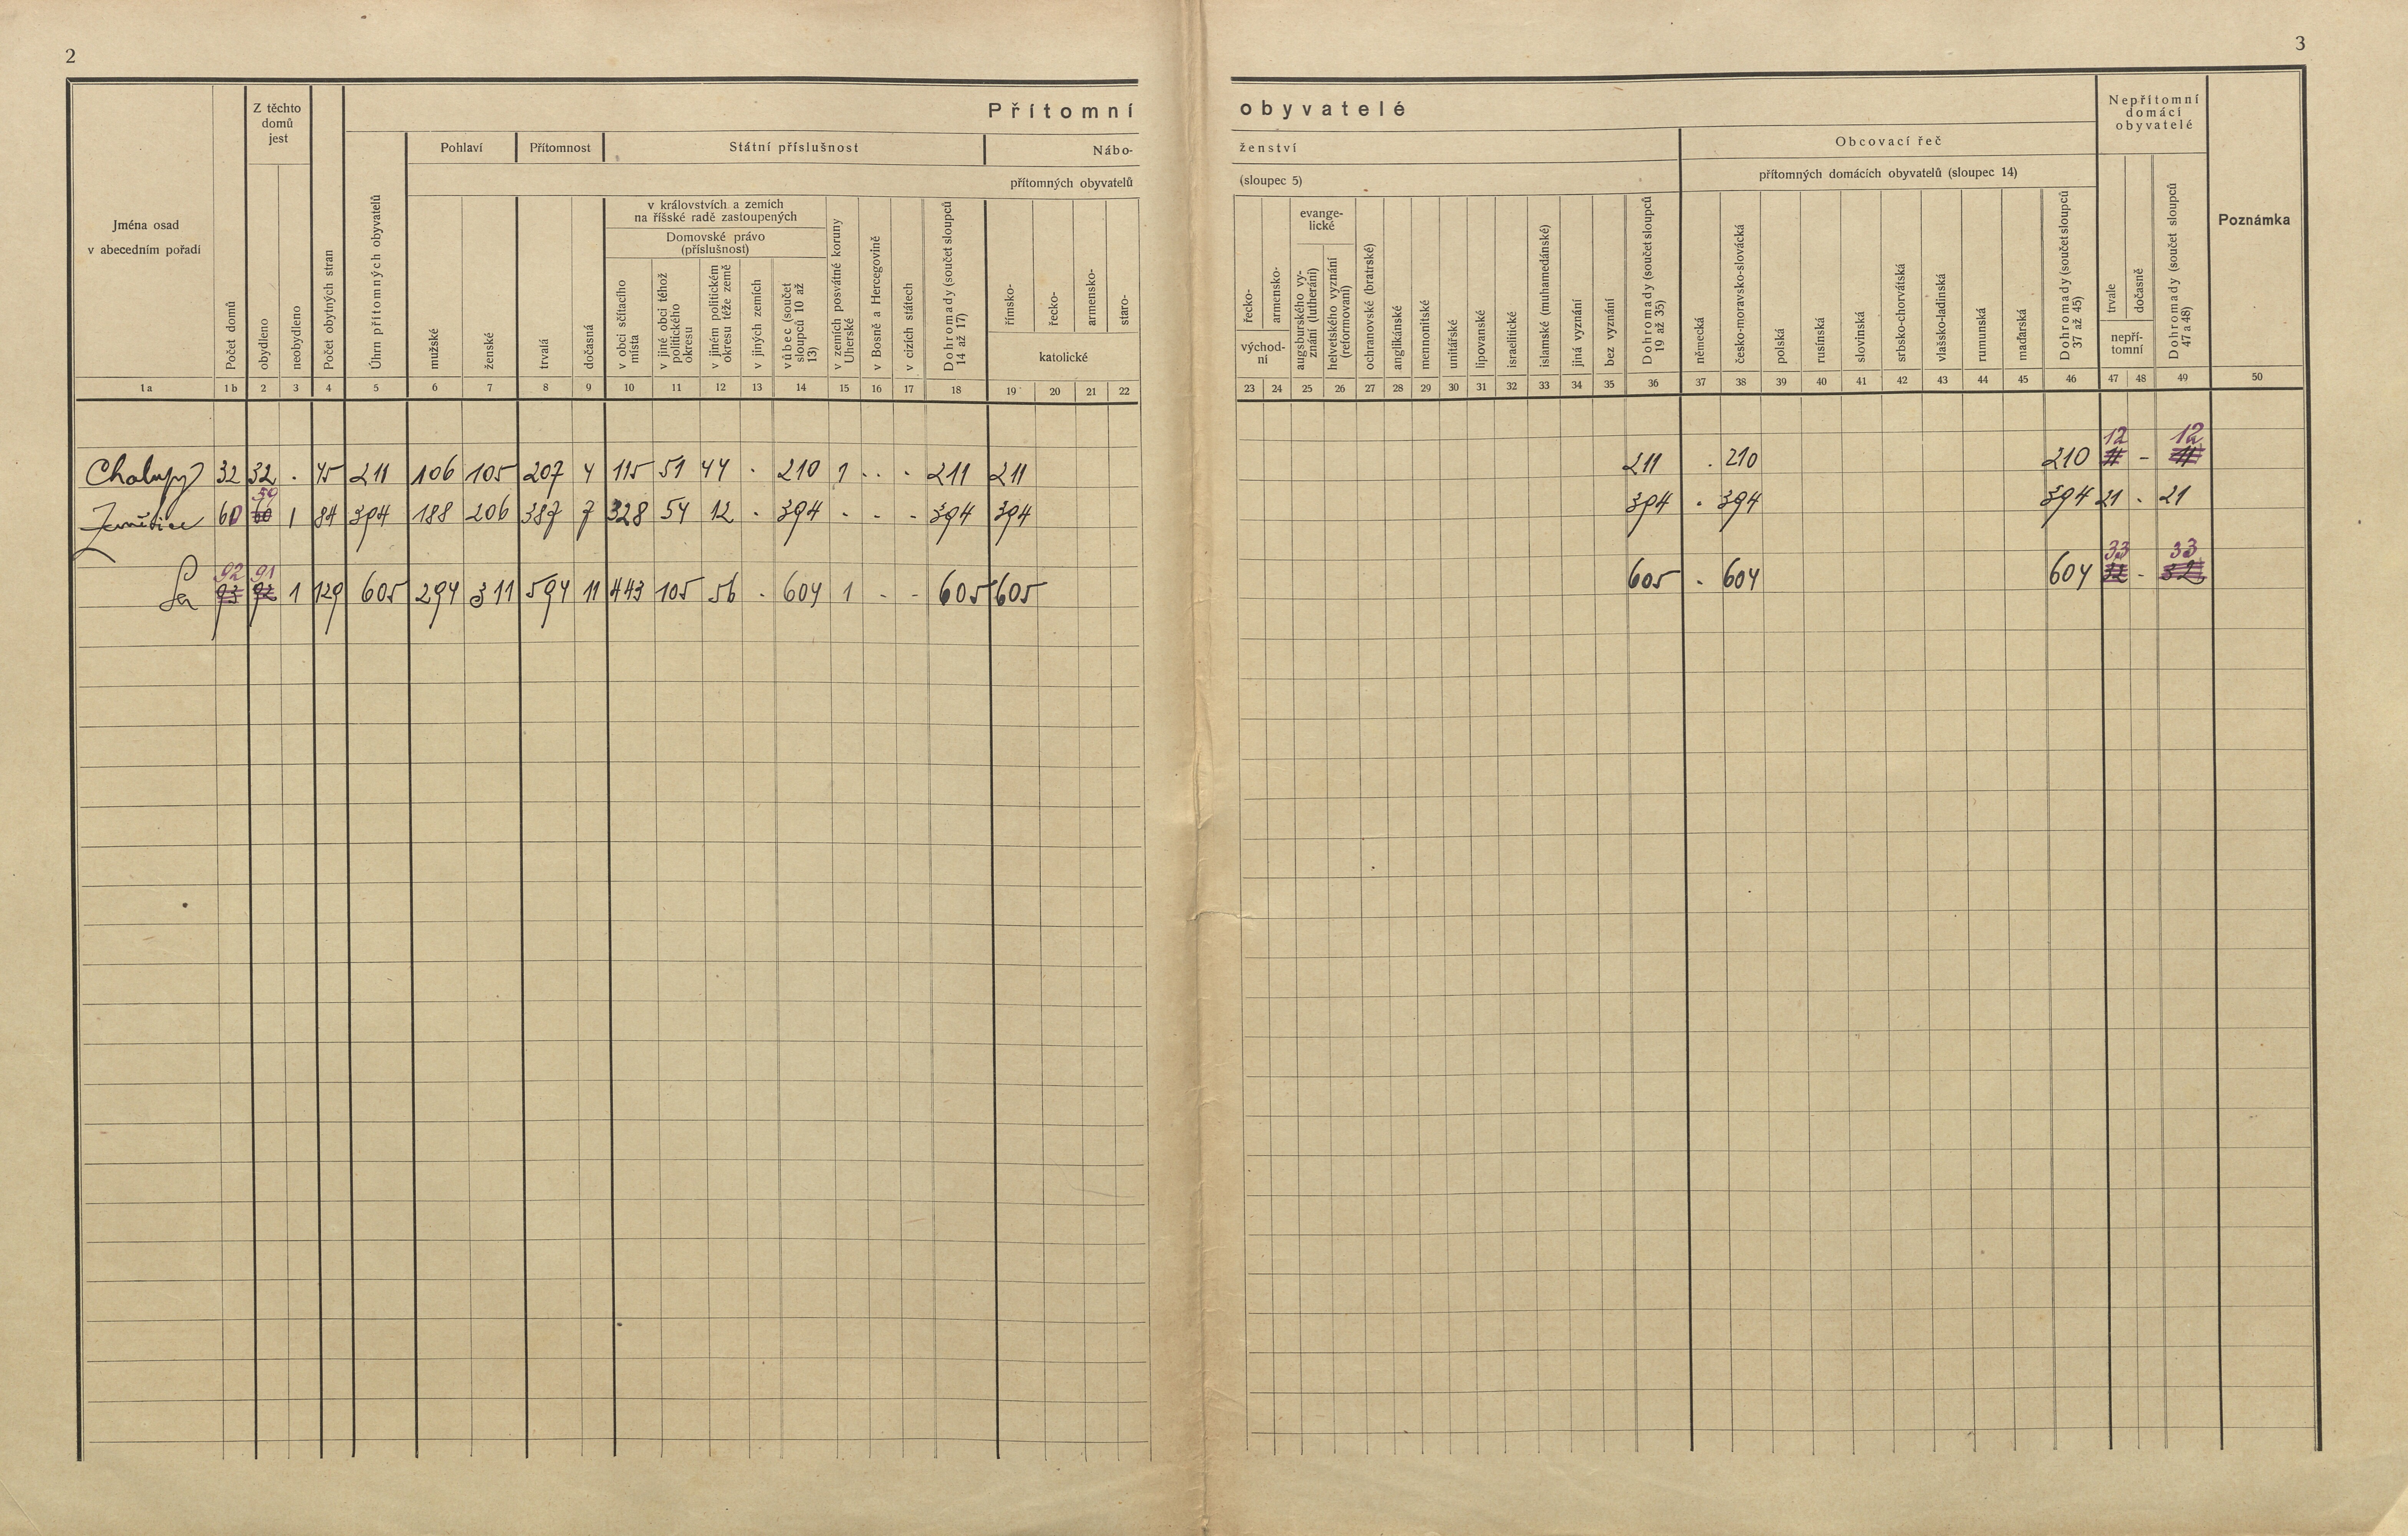 2
3
Přítomní obyvatelé
Z těchto domů jest
Nepřítomní domácí obyvatelé
Pohlaví
Přítomnost
Státní příslušnost
Náboženství
přítomných obyvatelů (sloupec 5)
Obcovací řeč
přítomných domácích obyvatelů (sloupec 14)
Jména osad
v abecedním pořadí
Počet domů
obydleno
neobydleno
Počet obytných stran
Úhrn přítomných obyvatelů
mužské
ženské
trvalá
dočasná
v královstvích a zemích
na říšské radě zastoupených
Domovské právo
(příslušnost)
v obci sčítacího místa
v jiné obci téhož politického okresu
v jiném politickém okresu téže země
v jiných zemích
vůbec (součet sloupců 10 až 13)
v zemích posvátné koruny Uherské
v Bosně a Hercegovině
v cizích státech
Dohromady (součet sloupců 14 až 17)
římsko-
řecko-
armensko-
staro-
katolické
řecko-
armensko-
východní
evangelické
augsburského vyznání (lutheráni)
helvetského vyznání (reformovaní)
ochranovské (bratrské)
anglikánské
mennonitské
unitářské
lipovanské
israelitické
islamské (muhamedánské)
jiná vyznání
bez vyznání
Dohromady (součet sloupců 19 až 35)
německá
česko-moravsko-slovácká
polská
rusínská
slovinská
srbsko-chorvátská
vlašsko-ladinská
rumunská
maďarská
Dohromady (součet sloupců 37 až 45)
trvale
dočasně
nepřítomní
Dohromady (součet sloupců 47 a 48)
Poznámka
1a 1b 2 3 4 5 6 7 8 9 10 11 12 13 14 15 16 17 18 19 20 21 22 23 24 25 26 27 28 29 30 31 32 33 34 35 36 37 38 39 40 41 42 43 44 45 46 47 48 49 50
12 12
Chalupy 32 32 . 45 211 106 105 207 4 115 51 44 . 210 1 . . 211 211 211 . 210 210 11 - 11
59
60 60 1 84 394 188 206 387 7 328 54 12 - 394 - - - 394 394 394 . 394 394 21 . 21
92 91 33 33
Sa 93 92 1 129 605 294 311 594 11 443 105 56 . 604 1 - - 605 605 605 . 604 604 32 - 32